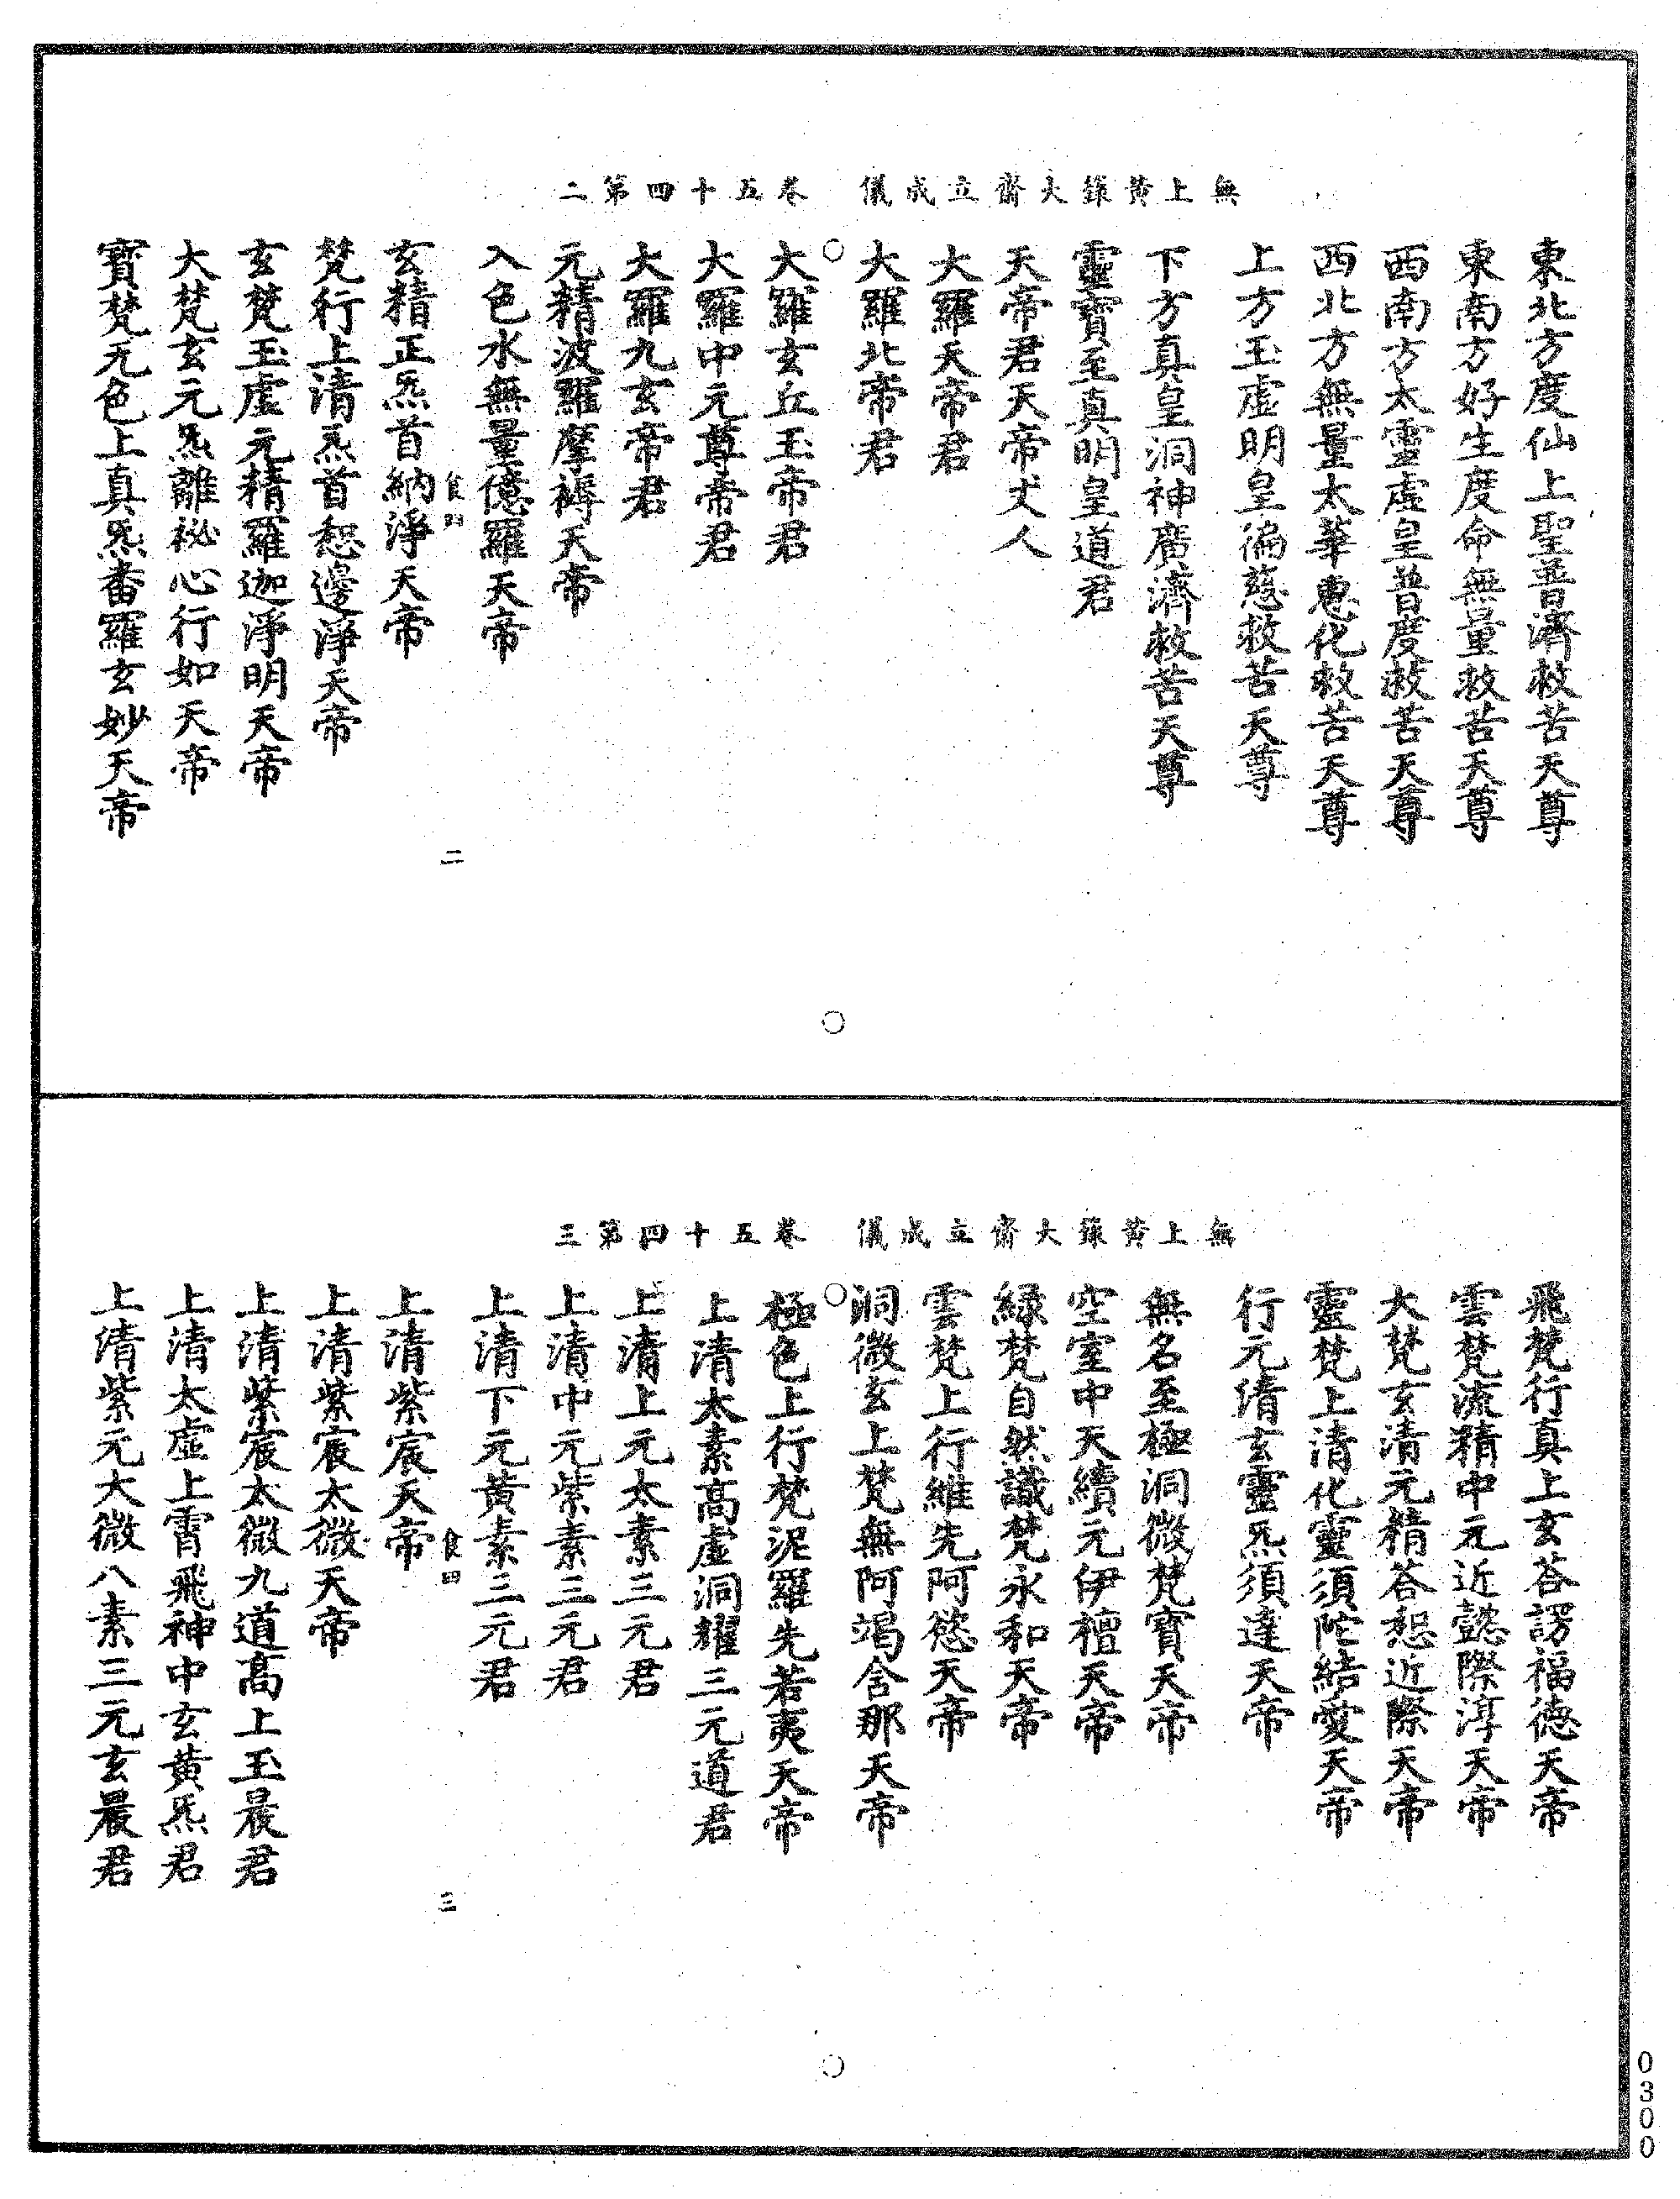 無上黃籙大齋立成儀　卷五十四第二
東北方度仙上聖普濟救苦天尊
東南方好生度命無量救苦天尊
西南方太靈虛皇普度救苦天尊
西北方無量太華惠化救苦天尊
上方玉虛明皇徧慈救苦天尊
下方真皇洞神廣濟救苦天尊
靈寶至真明皇道君
天帝君天帝丈人
大羅天帝君
大羅北帝君
大羅玄丘玉帝君
大羅中元尊帝君
大羅九玄帝君
元精波羅摩褥天帝
入色水無量億羅天帝
食四
二
玄精正炁首納淨天帝
梵行上清炁首恕邊淨天帝
玄梵玉虛元精羅迦淨明天帝
大梵玄元炁離祕心行如天帝
寶梵元色上真炁畨羅玄妙天帝
無上黃籙大齋立成儀　卷五十四第三
飛梵行真上玄荅謣福德天帝
雲梵流精中元近懿際淳天帝
大梵玄清元精荅恕近際天帝
靈梵上清化靈須陀結愛天帝
行元清玄靈炁須達天帝
無名至極洞微梵寶天帝
空室中天續元伊檀天帝
緑梵自然識梵永和天帝
雲梵上行維先阿慾天帝
洞微玄上梵無阿竭含那天帝
極色上行梵泥羅先若夷天帝
上清太素高虛洞耀三元道君
上清上元太素三元君
上清中元紫素三元君
上清下元黃素三元君
食四
三
上清紫宸天帝
上清紫宸太微天帝
上清紫宸太微九道高上玉晨君
上清太虛上霄飛神中玄黃炁君
上清紫元大微八素三元玄晨君
0300